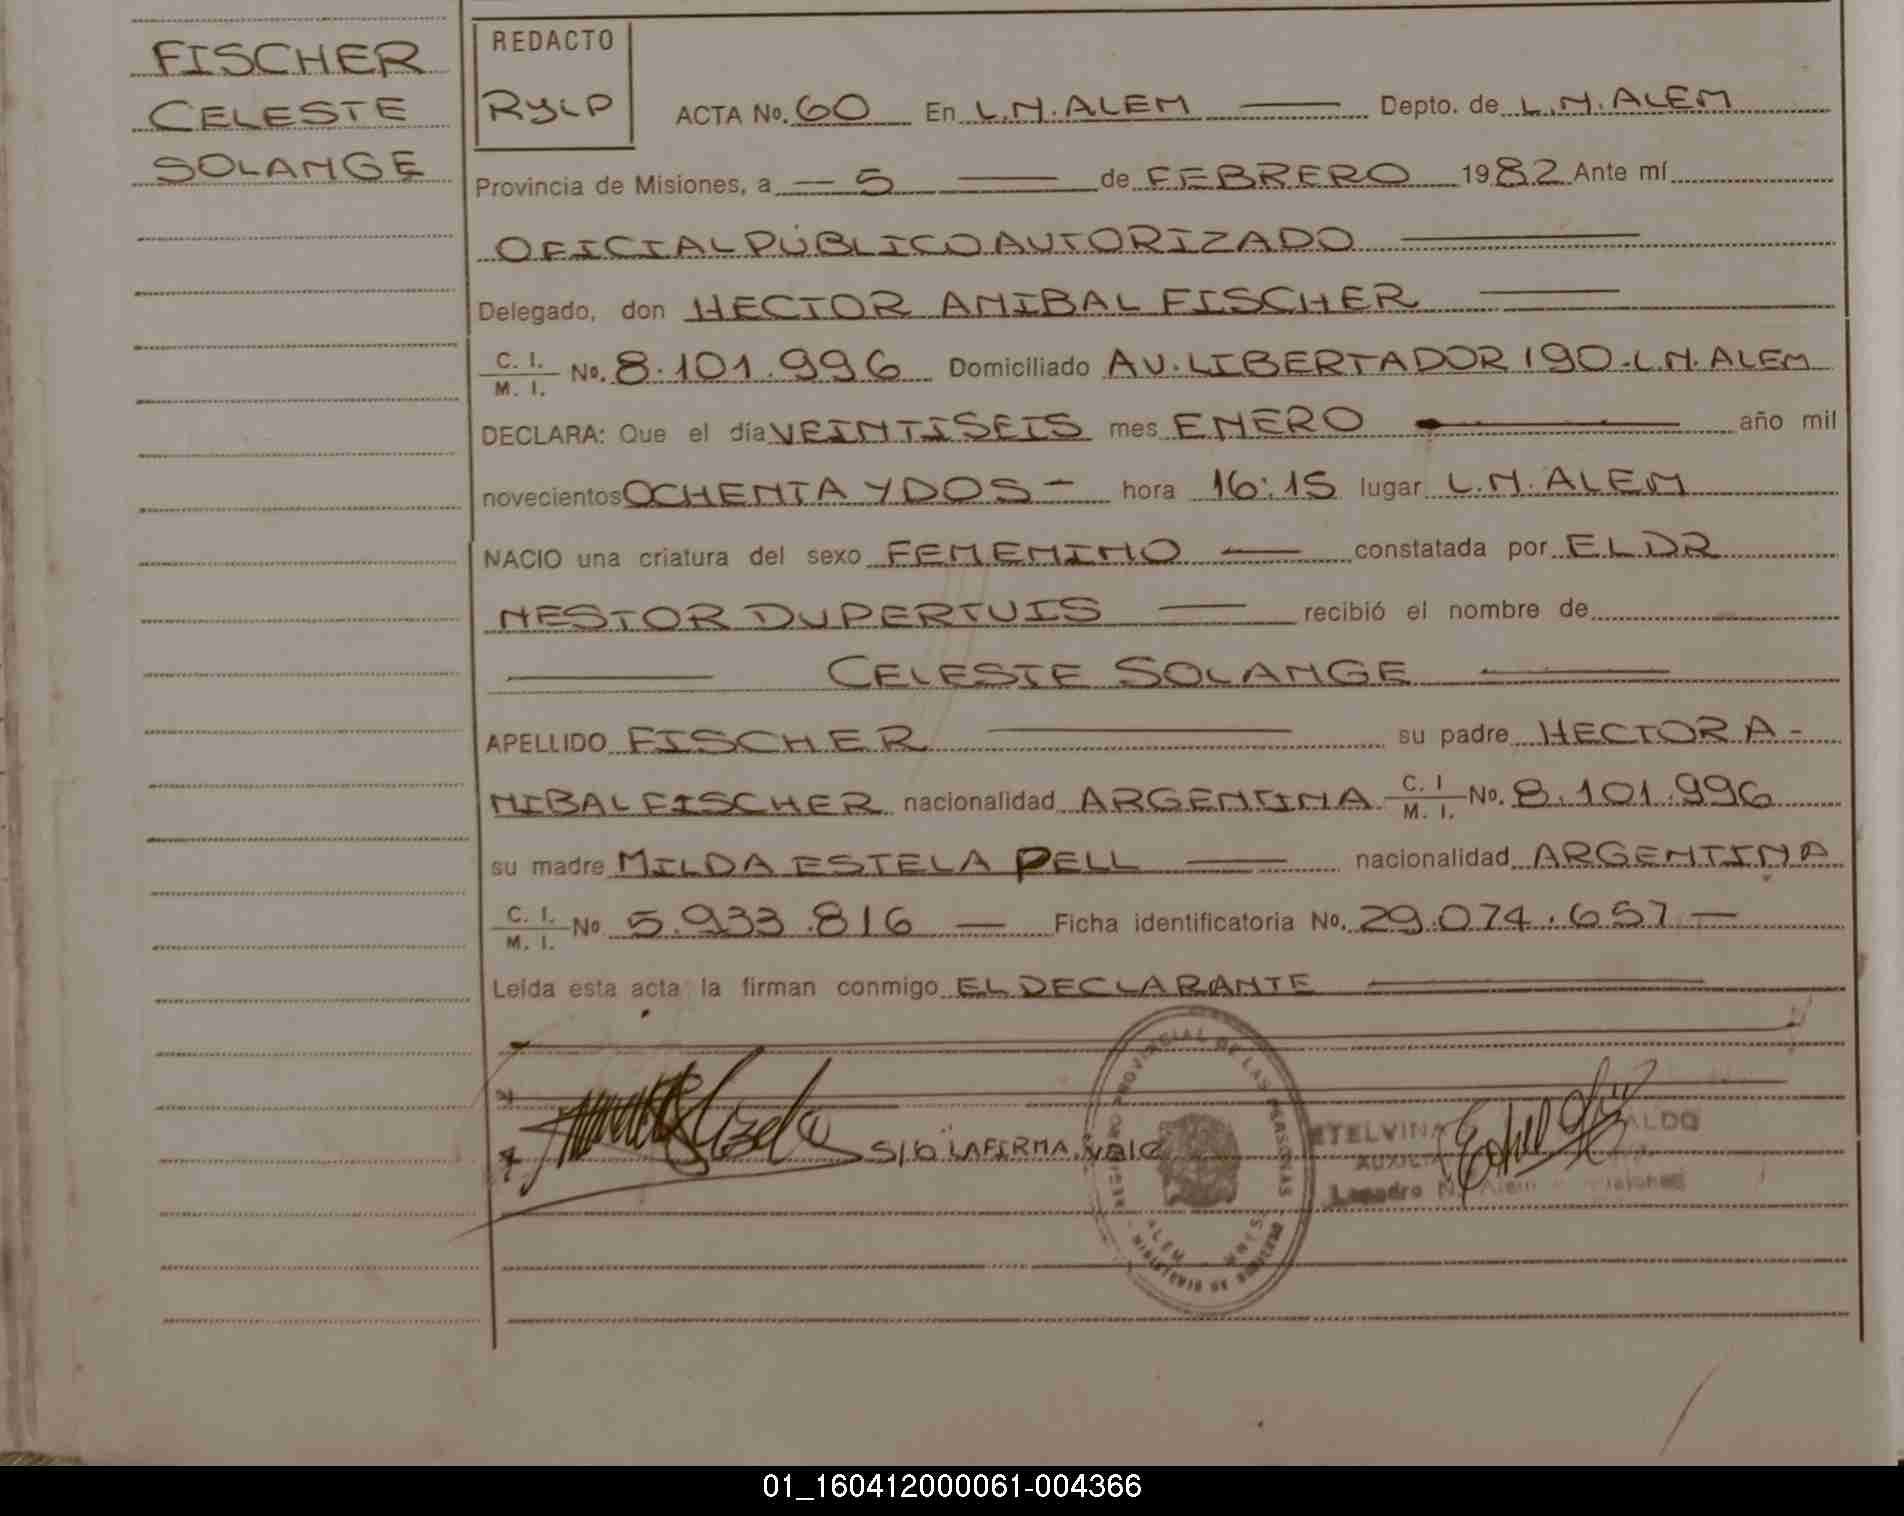 FISCHER
CELESTE
SOLANGE
REDACTO
RYLP
ACTA No. 60 En L.N. ALEM Depto. de L.N. ALEM
Provincia de Misiones, a 5 de FEBRERO 1982 Ante mí
OFICIAL PÚBLICO AUTORIZADO
Delegado, don HECTOR ANIBAL FISCHER
C. I. M. I. No. 8.101.996 Domiciliado AV. LIBERTADOR 190-L.N. ALEM
DECLARA: Que el día VEINTISEIS mes ENERO año mil
novecientos OCHENTA Y DOS - hora 16:15 lugar L.N. ALEM
NACIO una criatura del sexo FEMENINO constatada por EL DR
NESTOR DUPERTUIS recibió el nombre de
CELESTE SOLANGE
APELLIDO FISCHER su padre HECTOR A-
NIBAL FISCHER nacionalidad ARGENTINA C. I M. I. No. 8.101.996
su madre NILDA ESTELA PELL nacionalidad ARGENTINA
C. I. M. I. No 5.933.816 Ficha identificatoria No. 29.074.657
Leída esta acta la firman conmigo EL DECLARANTE
PROVINCIAL DE LAS PERSONAS
S/b LA FIRMA. VALE
ETELVINA ALDO
AUXILIA
Leandro N. Alem
ALEM MNES.
MINISTERIO DE GOBIERNO
01_160412000061-004366